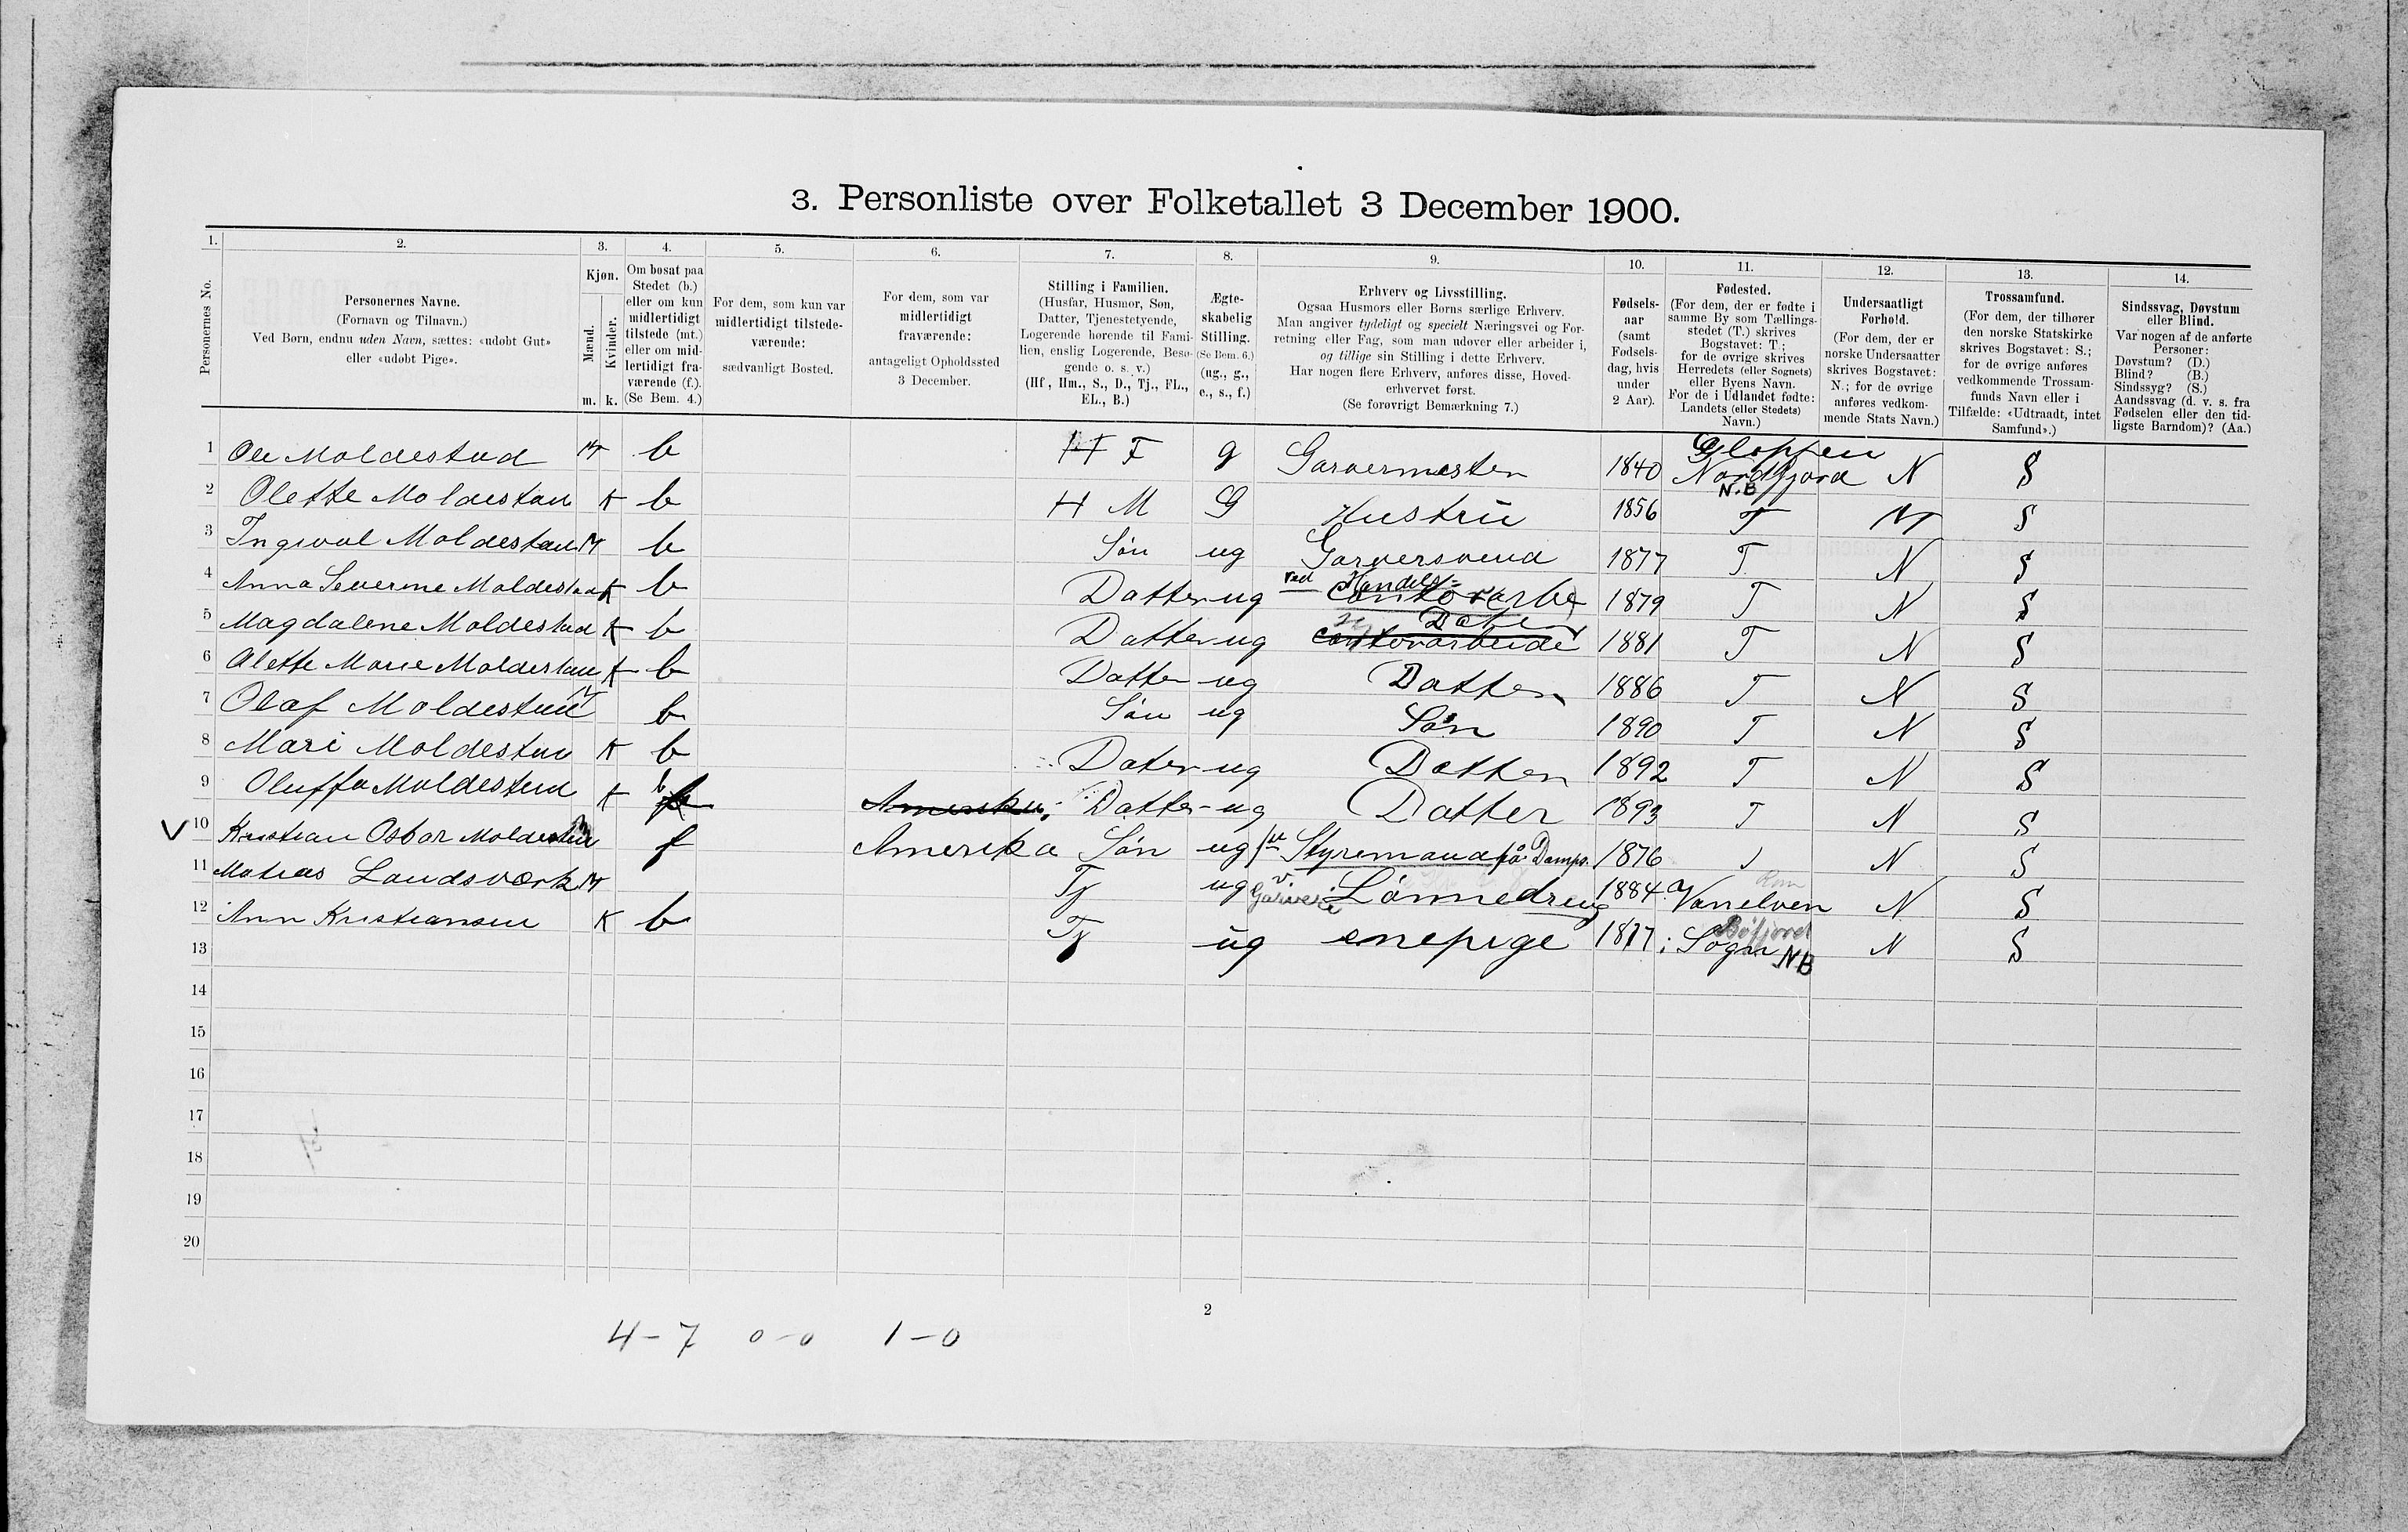 3. Personliste over Folketallet 3 December 1900.
1. 2. 3. 4. 5. 6. 7. 8. 9. 10. 11. 12. 13. 14.
Personernes No.
Personernes Navne.
(Fornavn og Tilnavn.)
Ved Børn, endnu uden Navn, sættes: «udøbt Gut»
eller «udøbt Pige».
Kjøn.
Mænd.
Kvinder.
m. k.
Om bosat paa
Stedet (b.)
eller om kun
midlertidigt
tilstede (mt.)
eller om mid-
lertidigt fra-
værende (f.).
(Se Bem. 4.)
For dem, som kun var
midlertidigt tilstede-
værende:
sædvanligt Bosted.
For dem, som var
midlertidigt
fraværende:
antageligt Opholdssted
3 December.
Stilling i Familien.
(Husfar, Husmor, Søn,
Datter, Tjenestetyende,
Logerende hørende til Fami-
lien, enslig Logerende, Besø-
gende o. s. v.)
(Hf, Hm., S., D., Tj., FL.,
EL., B.)
Ægte-
skabelig
Stilling.
(Se Bem. 6.)
(ug., g.,
e., s., f.)
Erhverv og Livsstilling.
Ogsaa Husmors eller Børns særlige Erhverv.
Man angiver tydeligt og specielt Næringsvei og For-
retning eller Fag, som man udøver eller arbeider i,
og tillige sin Stilling i dette Erhverv.
Har nogen flere Erhverv, anføres disse, Hoved-
erhvervet først.
(Se forøvrigt Bemærkning 7.)
Fødsels-
aar
(samt
Fødsels-
dag, hvis
under
2 Aar).
Fødested.
(For dem, der er fødte i
samme By som Tællings-
stedet (T.) skrives
Bogstavet: T.;
for de øvrige skrives
Herredets (eller Sognets)
eller Byens Navn.
For de i Udlandet fødte:
Landets (eller Stedets)
Navn.)
Undersaatligt
Forhold.
(For dem, der er
norske Undersaatter
skrives Bogstavet:
N.; for de øvrige
anføres vedkom-
mende Stats Navn.)
Trossamfund.
(For dem, der tilhører
den norske Statskirke
skrives Bogstavet: S.;
for de øvrige anføres
vedkommende Trossam-
funds Navn eller i
Tilfælde: «Udtraadt, intet
Samfund».)
Sindssvag, Døvstum
eller Blind.
Var nogen af de anførte
Personer:
Døvstum? (D.)
Blind? (B.)
Sindssyg? (S.)
Aandssvag (d. v. s. fra
Fødselen eller den tid-
ligste Barndom)? (Aa.)
1 Ole Moldestad M b H F g Garvermester 1840 Gloppen Nordfjord N.B N S
2 Olette Moldestad K b H M G Hustru 1856 T N S
3 Ingvval Moldestad M b Søn ug Garversvend 1877 T N S
4 Anna Severine Moldestad K b Datter ug ved Handels= Contorarbe 1879 T N S
5 Magdalene Moldestad K b Datter ug contorarbeide Dater 1881 T N S
6 Olette Marie Moldestad K b Datter ug Datter 1886 T N S
7 Olaf Moldestad M b Søn ug Søn 1890 T N S
8 Mari Moldestad K b Dater ug Datter 1892 T N S
9 Oluffa Moldestad K b Amerika Datter ug Datter 1893 T N S
V 10 Kristian Oskar Moldestad f Amerika Søn ug Styremand på Damps. 1876 T N S
11 Matias Landsværk M Tj ug v Garveri Lønnedreng 1884 Vanelven N S
12 Ann Kristiansen K b Tj ug enepige 1877 i Sogn NB N S
13
14
15
16
17
18
19
20
2
4-7 0-0 1-0